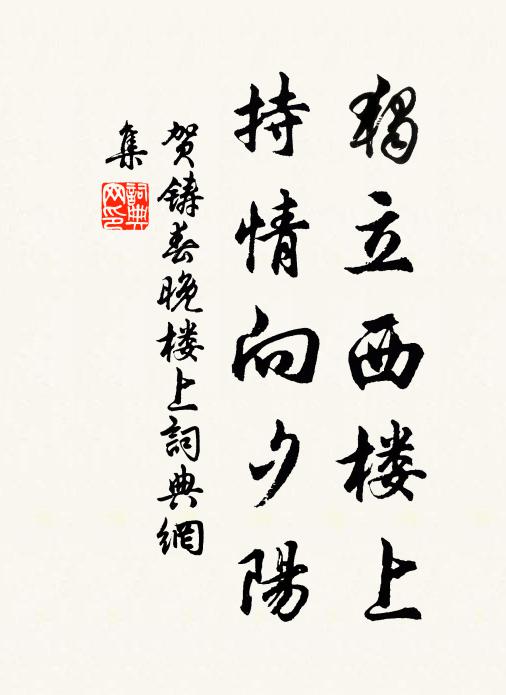 獨立西楼上
持情向夕陽
贺鑄春晚楼上詞典網
集
詞典網印